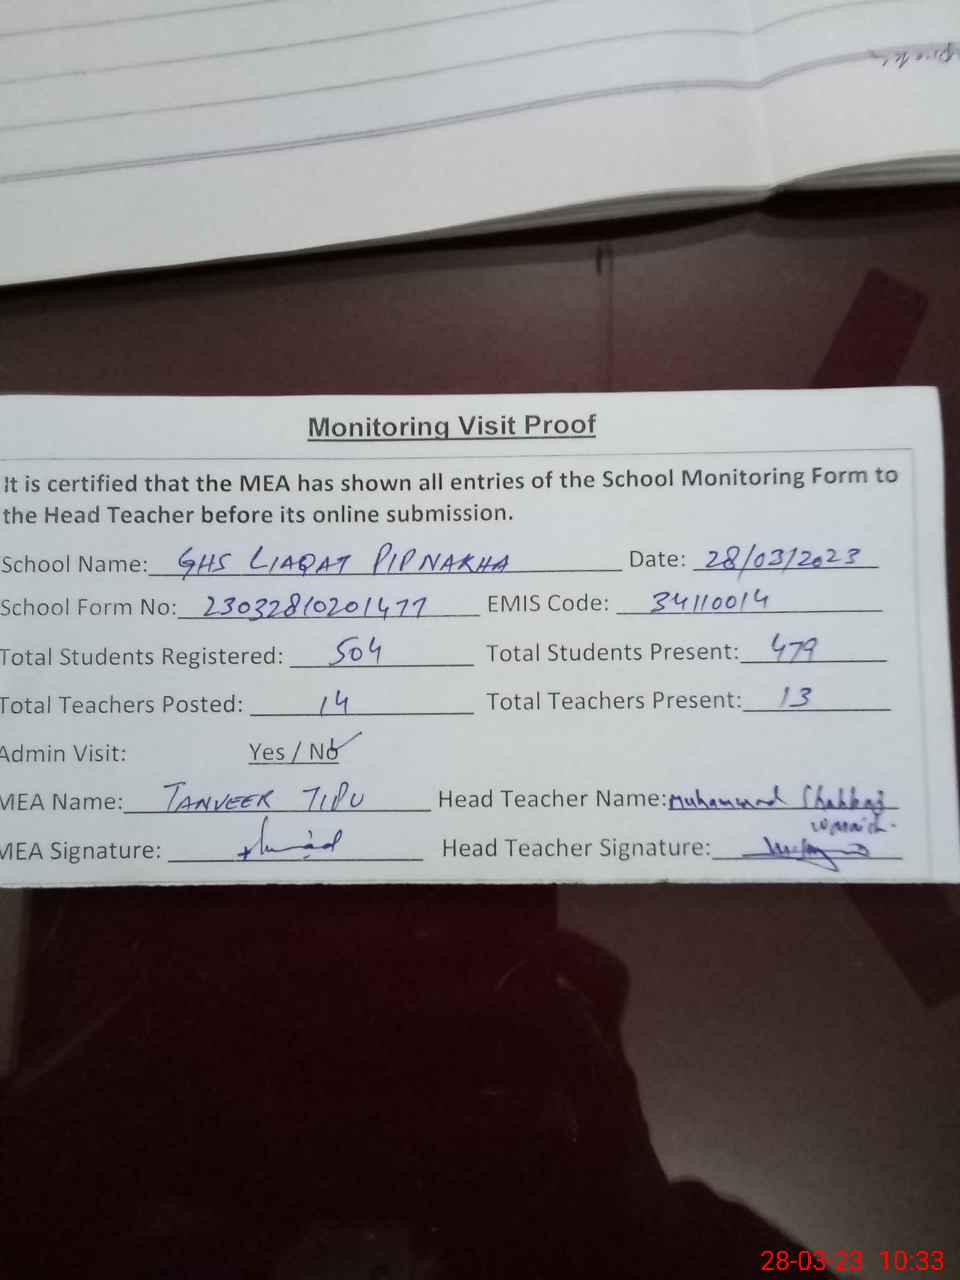 Monitoring Visit Proof
It is certified that the MEA has shown all entries of the School Monitoring Form to
the Head Teacher before its online submission.
School Name: GHS LIAQAT PIPNAKHA Date: 28/03/2023
School Form No: 23032810201477 EMIS Code: 34110014
Total Students Registered: 504 Total Students Present: 479
Total Teachers Posted: 14 Total Teachers Present: 13
Admin Visit: Yes / No
MEA Name: TANVEER TIPU Head Teacher Name: Muhammad
MEA Signature: Head Teacher Signature:
28-03-23 10:33